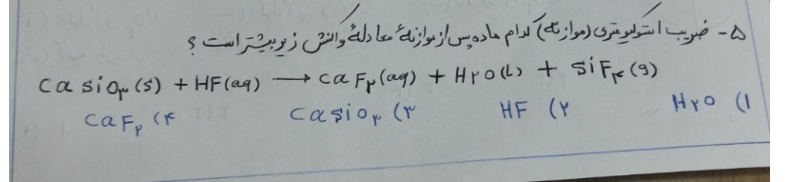 ۵- ضریب استوکیومتری (موازنه) کدام ماده پس از موازنهٔ معادلهٔ واکنش زیر بیشتر است ؟
CaSiO۳(s) + HF(aq) ⟶ CaF۲(aq) + H۲O(l) + SiF۴(g)
۱) H۲O ۲) HF ۳) CaSiO۳ ۴) CaF۲